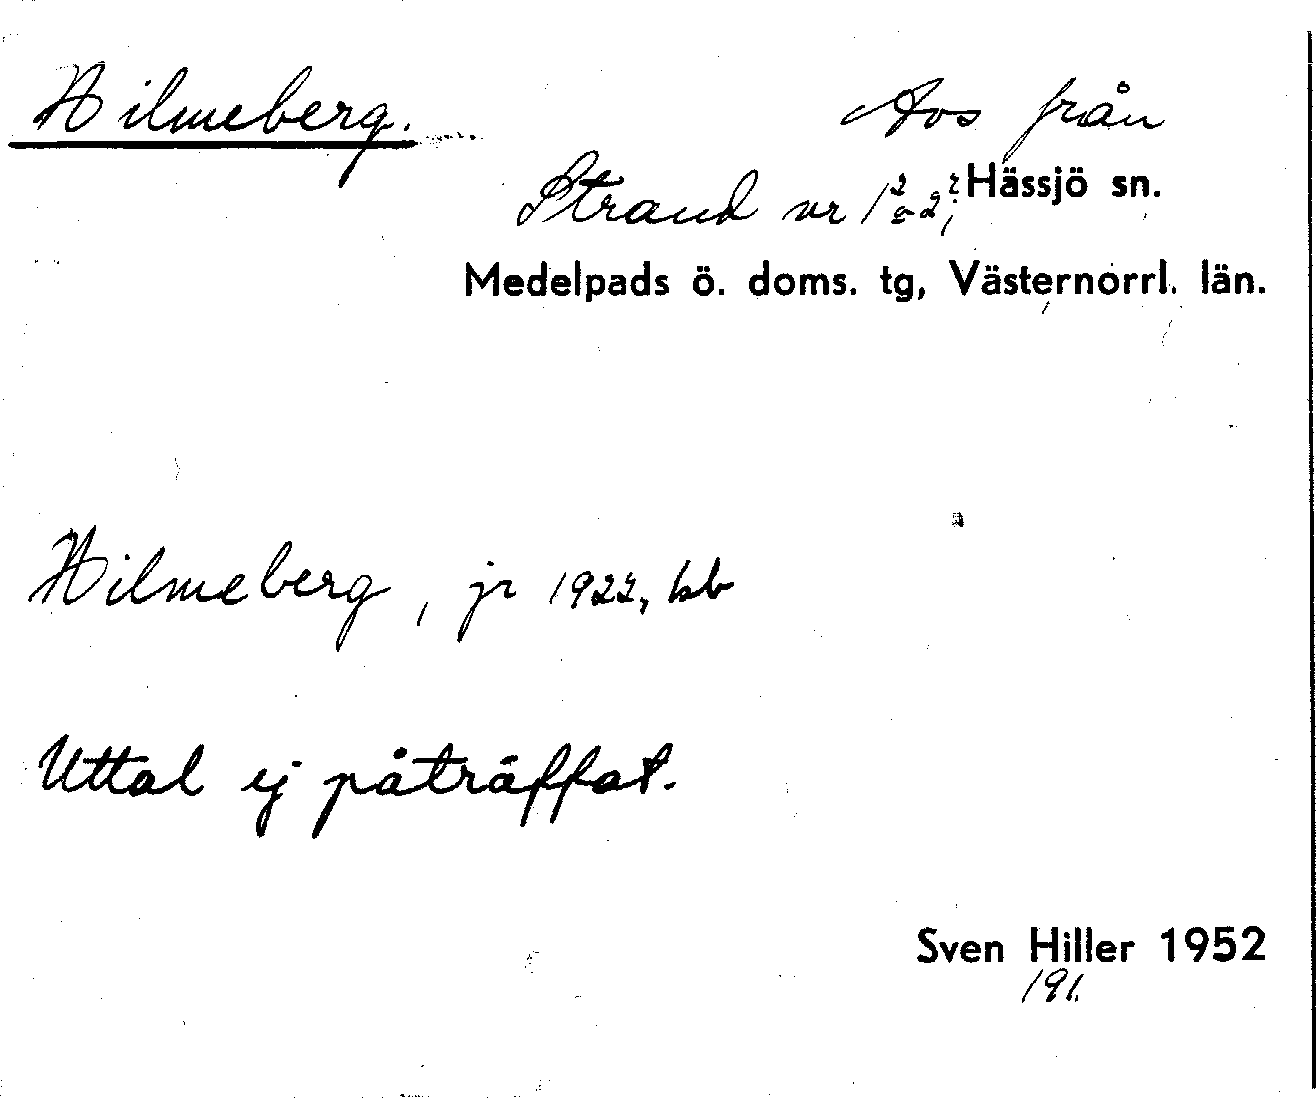 Hilmeberg. Avs från
Strand nr 1² o 2² i Hässjö sn.
Medelpads ö. doms. tg, Västernorrl. län.
Hilmeberg, jr 1922, kb
Uttal ej påträffat.
Sven Hiller 1952
191.